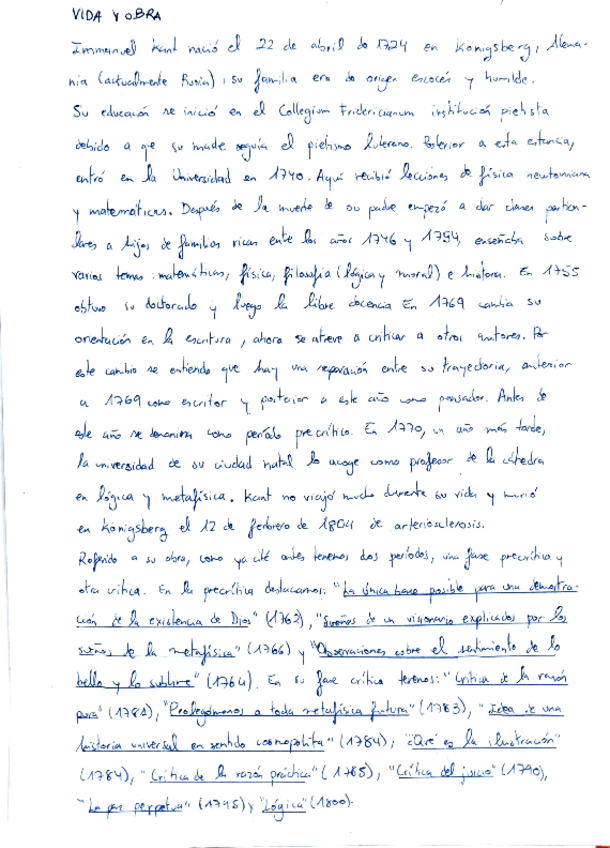 VIDA Y OBRA
Immanuel Kant nació el 22 de abril de 1724 en Königsberg, Alema-
nia (actualmente Rusia), su familia era de origen escocés y humilde.
Su educación se inició en el Collegium Fridericianum institución pietista
debido a qe su madre seguía el pietismo luterano. Posterior a esta estancia,
entró en la Universidad en 1740. Aquí recibió lecciones de física newtoniana
y matemáticas. Después de la muerte de su padre empezó a dar clases particu-
lares a hijos de familias ricas entre los años 1746 y 1754, enseñaba sobre
varios temas: matemáticas, física, filosofía (lógica y moral) e historia. En 1755
obtuvo su doctorado y luego la libre docencia En 1769 cambia su
orientación en la escritura, ahora se atreve a criticar a otros autores. Por
este cambio se entiende que hay una separación entre su trayectoria, anterior
a 1769 como escritor y posterior a este año como pensador. Antes de
este año se denomina como período precrítico. En 1770, un año más tarde,
la universidad de su ciudad natal lo acoge como profesor de la cátedra
en lógica y metafísica. Kant no viajó mucho durante su vida y murió
en Königsberg el 12 de febrero de 1804 de arteriosclerosis.
Referido a su obra, como ya cité antes tenemos dos períodos, una fase precrítica y
otra crítica. En la precrítica destacamos: "La única base posible para una demostra-
ción de la existencia de Dios" (1762), "Sueños de un visionario explicados por los
sueños de la metafísica" (1766) y "Observaciones sobre el sentimiento de lo
bello y lo sublime" (1764). En su fase crítica tenemos: "Crítica de la razón
pura" (1781), "Prolegómenos a toda metafísica futura" (1783), "Idea de una
historia universal en sentido cosmopolita" (1784), "¿Qué es la ilustración"
(1784), "Crítica de la razón práctica" (1785), "Crítica del juicio" (1790),
"La paz perpetua" (1795) y "Lógica" (1800).